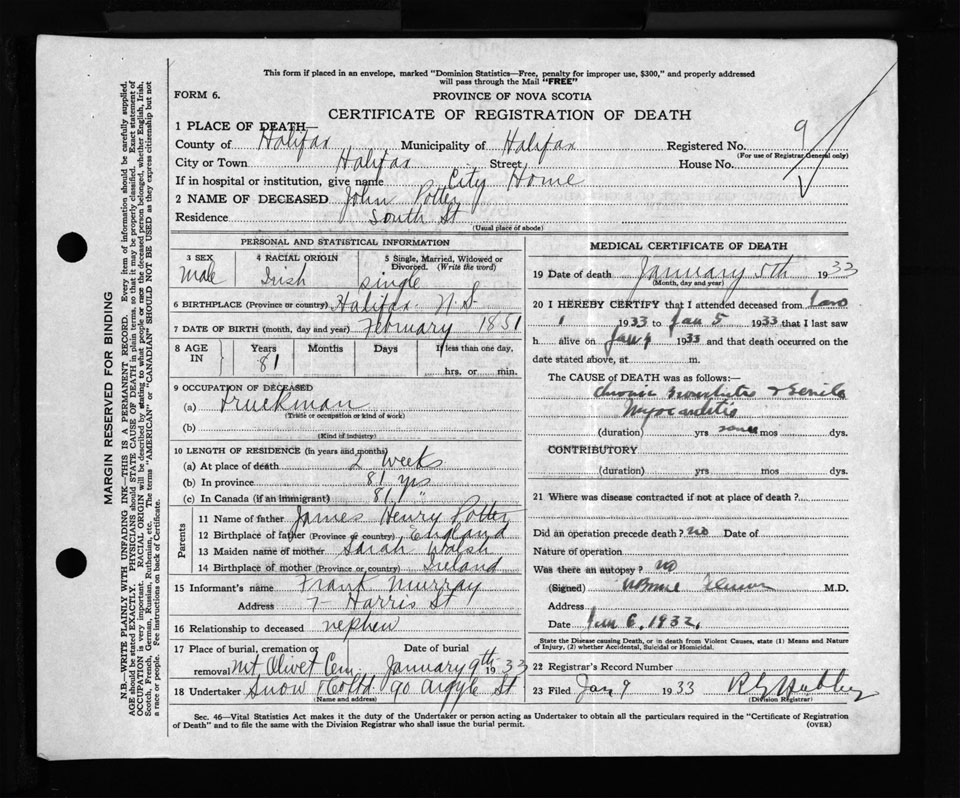 This form if placed in an envelope, marked "Dominion Statistics—Free, penalty for improper use, $300," and properly addressed
will pass through the Mail "FREE"
FORM 6.
PROVINCE OF NOVA SCOTIA
CERTIFICATE OF REGISTRATION OF DEATH
1 PLACE OF DEATH—
County of Halifax Municipality of Halifax Registered No. 9
(For use of Registrar General only)
City or Town Halifax Street House No.
If in hospital or institution, give name City Home
2 NAME OF DECEASED John Potter
Residence South St
(Usual place of abode)
PERSONAL AND STATISTICAL INFORMATION
3 SEX 4 RACIAL ORIGIN 5 Single, Married, Widowed or
Divorced. (Write the word)
Male Irish single
6 BIRTHPLACE (Province or country) Halifax N.S.
7 DATE OF BIRTH (month, day and year) February 1851
8 AGE IN Years Months Days If less than one day,
81 hrs. or min.
9 OCCUPATION OF DECEASED
(a) Truckman
(Title or occupation or kind of work)
(b)
(Kind of industry)
10 LENGTH OF RESIDENCE (in years and months)
(a) At place of death 2 weeks
(b) In province 81 yrs
(c) In Canada (if an immigrant) 81 "
Parents
11 Name of father James Henry Potter
12 Birthplace of father (Province or country) England
13 Maiden name of mother Sarah Walsh
14 Birthplace of mother (Province or country) Ireland
15 Informant's name Frank Murray
Address 7 Harris St
16 Relationship to deceased nephew
17 Place of burial, cremation or Date of burial
removal Mt Olivet Cem. January 9th 1933
18 Undertaker Snow & Co Ltd 90 Argyle St
(Name and address)
MEDICAL CERTIFICATE OF DEATH
19 Date of death January 5th 1933
(Month, day and year)
20 I HEREBY CERTIFY that I attended deceased from
1 1933 to Jan 5 1933 that I last saw
h alive on Jan 1933 and that death occurred on the
date stated above, at m.
The CAUSE OF DEATH was as follows:—
chronic Bronchitis & Senile
Myocarditis
(duration) yrs some mos dys.
CONTRIBUTORY
(duration) yrs mos dys.
21 Where was disease contracted if not at place of death?
Did an operation precede death? no Date of
Nature of operation
Was there an autopsy? no
(Signed) M.D.
Address
Date Jan 6, 1932,
State the Disease causing Death, or in death from Violent Causes, state (1) Means and Nature
of Injury, (2) whether Accidental, Suicidal or Homicidal.
22 Registrar's Record Number
23 Filed Jan 9 1933
(Division Registrar)
Sec. 46—Vital Statistics Act makes it the duty of the Undertaker or person acting as Undertaker to obtain all the particulars required in the "Certificate of Registration
of Death" and to file the same with the Division Registrar who shall issue the burial permit. (OVER)
MARGIN RESERVED FOR BINDING
N.B.—WRITE PLAINLY WITH UNFADING INK—THIS IS A PERMANENT RECORD. Every item of information should be carefully supplied.
AGE should be stated EXACTLY. PHYSICIANS should STATE CAUSE OF DEATH in plain terms, so that it may be properly classified. Exact statement of
OCCUPATION is very important. RACIAL ORIGIN will be described by stating to what people or race the deceased person belonged, whether English, Irish,
Scotch, French, German, Russian, Ruthenian, etc. The terms "AMERICAN" or "CANADIAN" SHOULD NOT BE USED as they express citizenship but not
a race or people. Fee instructions on back of Certificate.